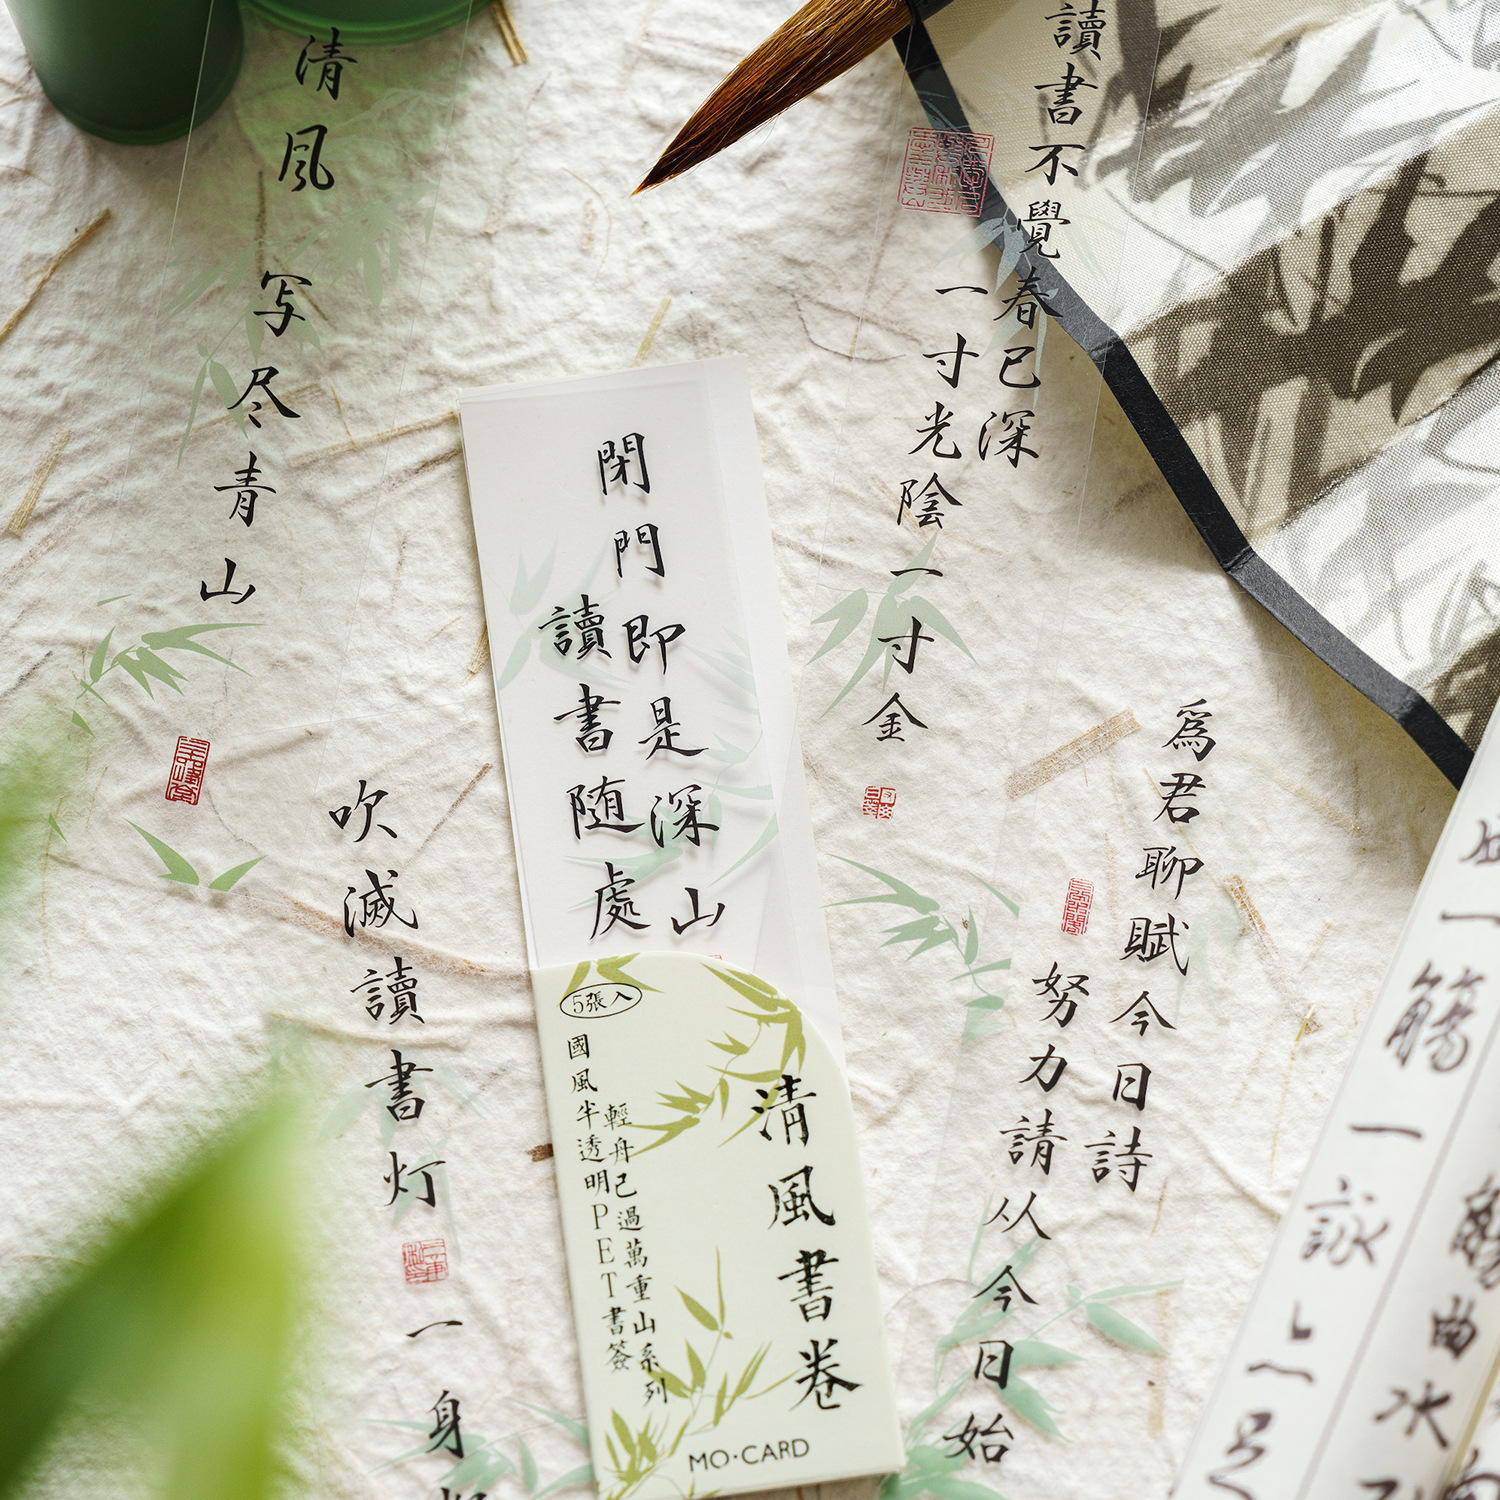 清风
写尽青山
讀書不覺春已深
一寸光陰一寸金
閉門即是深山
讀書随處
5張入
清風書卷
輕舟已過萬重山系列
國風半透明PET書簽
MO·CARD
吹滅讀書灯
一身
為君聊賦今日詩
努力請从今日始
一觴一詠
曲水
足